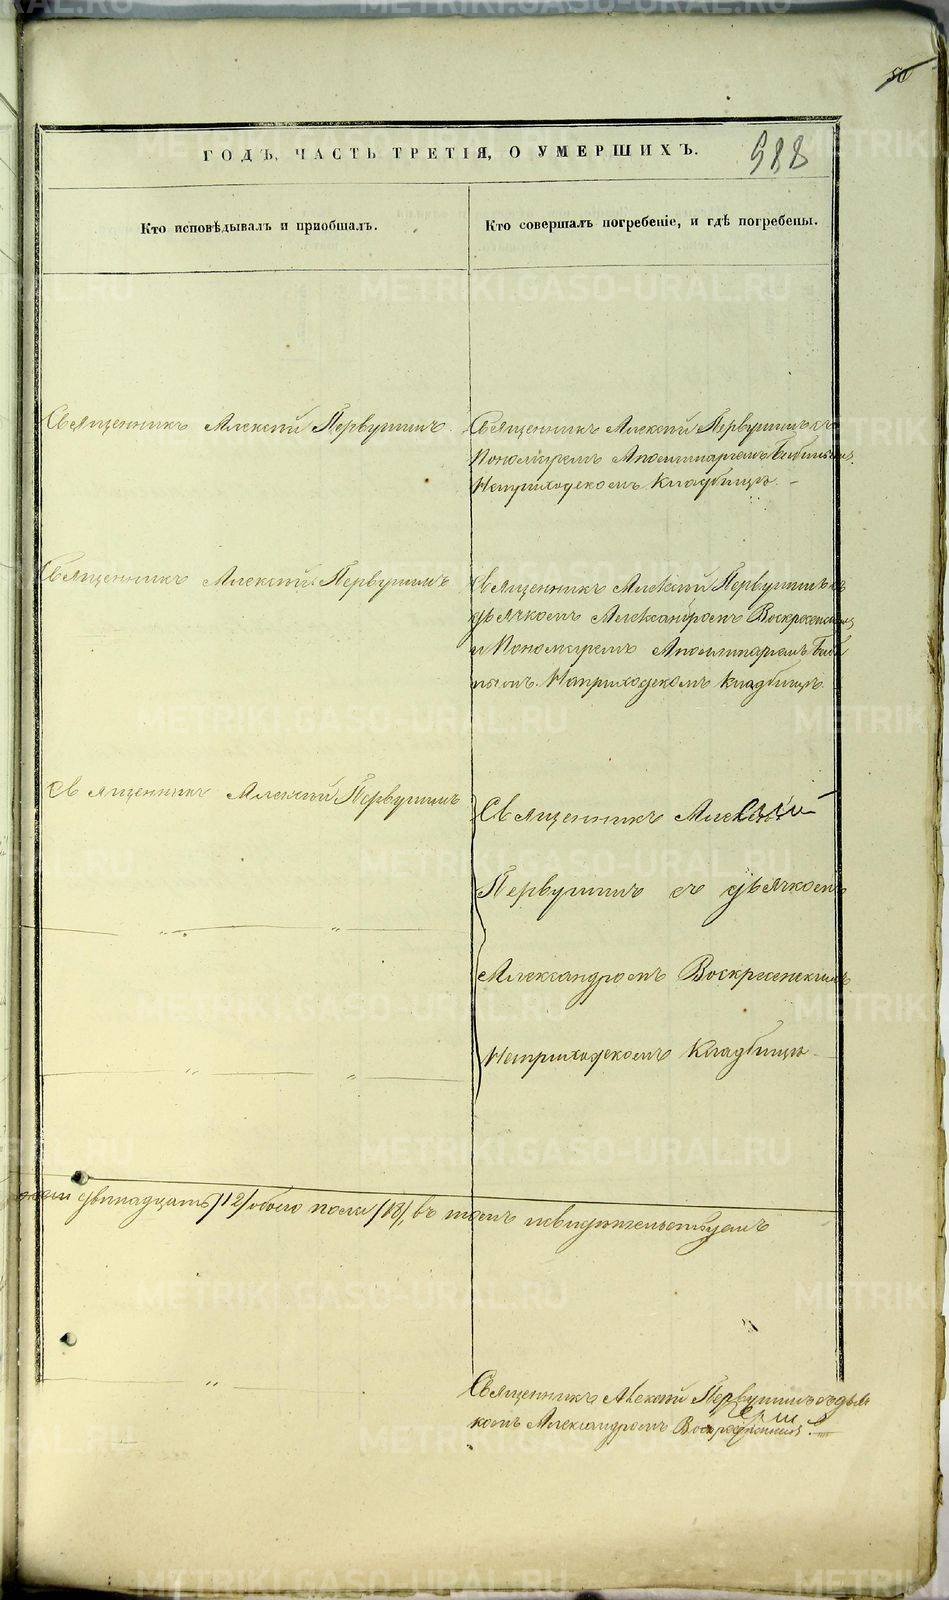 50
ГОДЪ, ЧАСТЬ ТРЕТІЯ, О УМЕРШИХЪ.
988
Кто исповѣдывалъ и пріобщалъ.
Кто совершалъ погребеніе, и гдѣ погребены.
Священникъ Алексій Первушинъ.
Священникъ Алексій Первушинъ съ
Пономаремъ Аполлинаріемъ
Наприходскомъ Кладбищѣ. –
Священникъ Алексій Первушинъ
Священникъ Алексій Первушинъ съ
дьячкомъ Александромъ Воскресенскимъ
и Пономаремъ Аполлинаріемъ
Наприходскомъ Кладбищѣ.
Священникъ Алексій Первушинъ
Священникъ Алексій
Первушинъ съ дьячкомъ
Александромъ Воскресенскимъ
Наприходскомъ Кладбищѣ
двѣнадцать /12/ обоего пола /18/, въ томъ и свидѣтельствуемъ
Священникъ Алексій Первушинъ съ дьяч
комъ Александромъ
METRIKI.GASO-URAL.RU